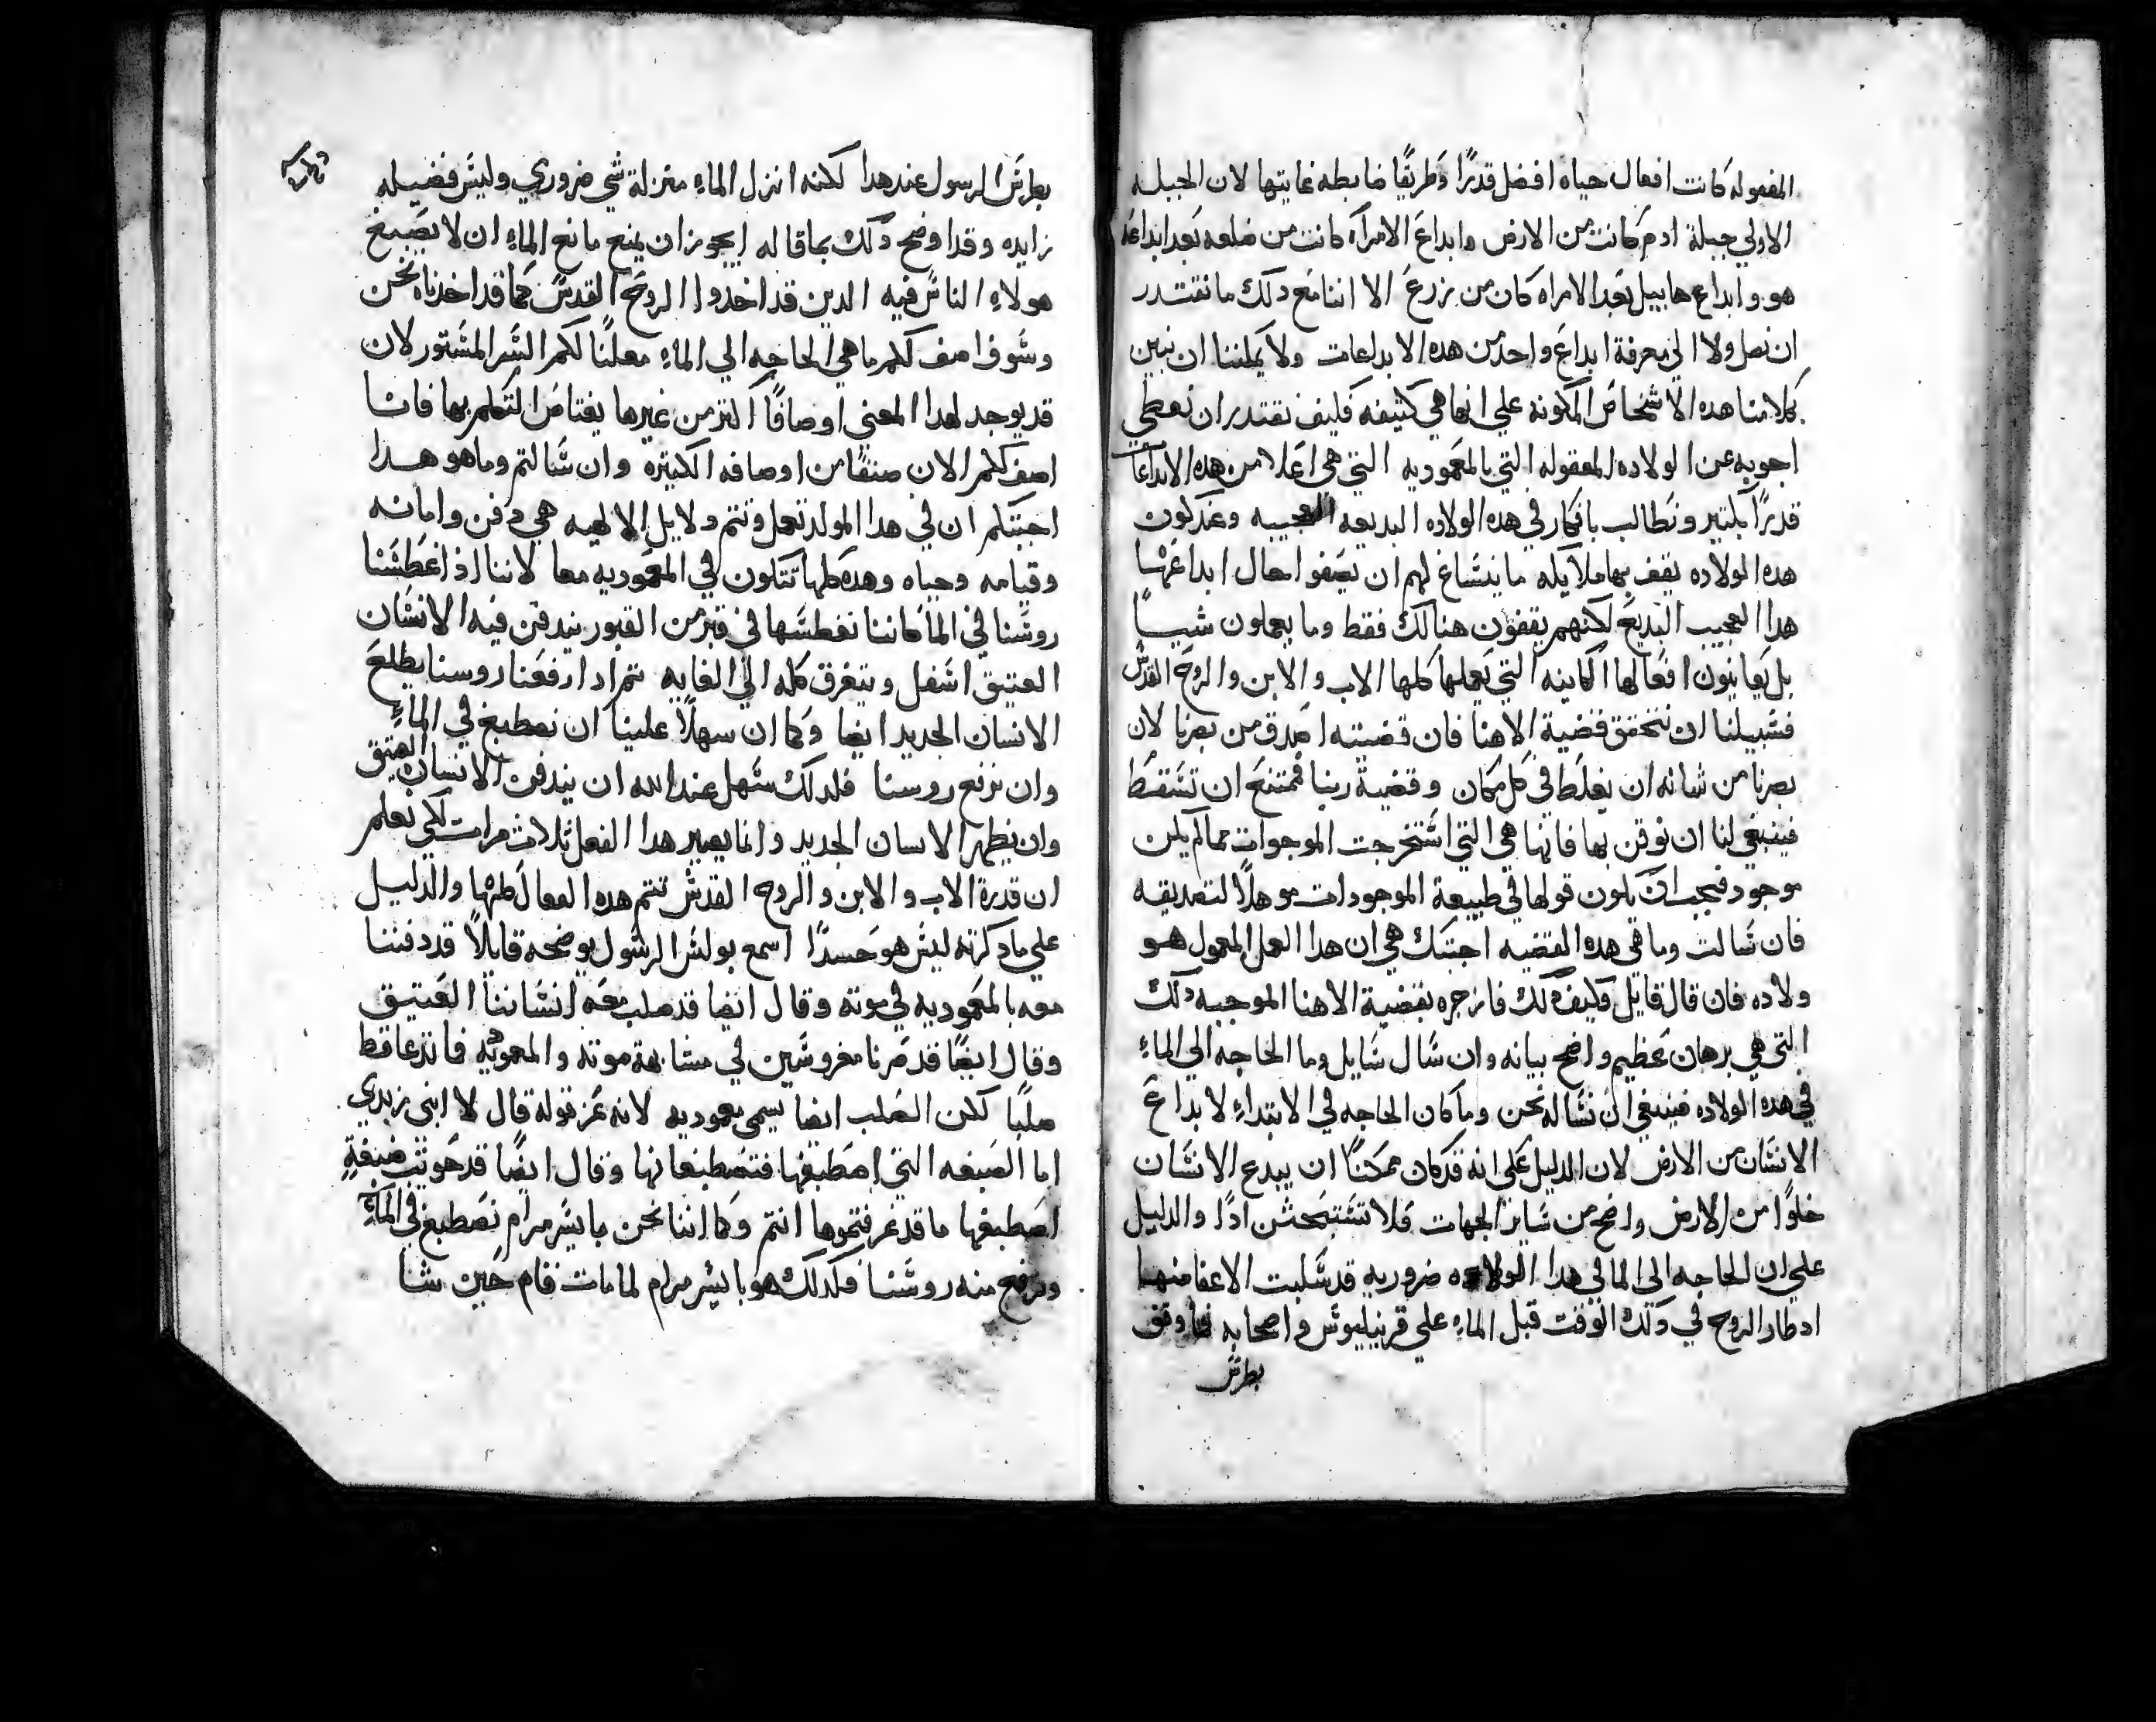 المفعوله كانت افعال حياه افضل قدرًا وطريقًا ضابطه غايتها لان الجبله
الاولي جبلة ادم كانت من الارض وابداع الامراه كانت من ضلعه بعد ابداعه
هو وابداع هابيل بعد الامراه كان من زرع الا اننا مع دلك ما نقتدر
ان نصل ولا الي معرفة ابداع واحد من هده الابداعات ولا يمكننا ان نبين
بكلامنا هده الاشخاص المكونه علي انها هي كتيفه فكيف نقتدر ان نعطي
اجوبه عن الولاده المعقوله التي بالمعموديه التي هي اعلا من هده الابداعات
قدرًا بكتير ونطالب بافكار في هده الولاده البديعه العجيبه وعند كون
هده الولاده تقف بها ملايكه ما ينساغ لهم ان يصفوا حال ابداعها
هدا العجيب البديع لكنهم يقفون هنالك فقط وما يعملون شييًا
بل يعاينون افعالها الكاينه التي يعملها كلها الاب والابن والروح القدس
فسبيلنا ان نتحقق قضية الاهنا فان قضيته اصدق من بصرنا لان
بصرنا من شانه ان يغلط في كل مكان وقضية ربنا فممتنع ان تسقط
فينبغي لنا ان نوقن بها فانها هي التي استخرجت الموجوات مما لم يكن
موجود فيجب ان يكون قولها في طبيعة الموجودات موهلًا لتصديقه
فان سالت وما هي هده القضيه اجبتك هي ان هدا العمل المعمول هو
ولاده فان قال قايل فكيف دلك فازجره بقضية الاهنا الموجبه دلك
التي هي برهان عظيم واضح بيانه وان سال سايل وما الحاجه الي الماء
في هده الولاده فينبغي ان نساله نحن وما كان الحاجه في الابتداء لابداع
الانسان من الارض لان الدليل علي انه قد كان ممكنًا ان يبدع الانسان
خلوًا من الارض واضح من ساير الجهات فلا تستبحثن ادًا والدليل
علي ان الحاجه الي الما في هدا الولاده ضروريه قد سلبت الاعفا منها
اد طار الروح في دلك الوقت قبل الماء علي قرنيليوس واصحابه فما وقف
بطرس
بطرس الرسول عند هدا لكنه انزل الماء منزلة شي ضروري وليس فضيله
زايده وقد اوضح دلك بما قاله ايجوز ان يمنع مانع الماء ان لا يصبغ
هولاء الناس فيه الدين قد اخدوا الروح القدس كما قد اخدناه نحن
وسوف اصف لكم ما هي الحاجه الي الماء معلنًا لكم السر المستور لان
قد يوجد لهدا المعني اوصافًا اكتر من غيرها يعتاص التكلم بها فانا
اصف لكم الان صنفًا من اوصافه الكتيره وان سالتم وما هو هدا
اجبتكم ان في هدا المولد تعمل وتتم دلايل الالهيه هي دفن وامانه
وقيامه وحياه وهده كلها تتكون في المعموديه معا لاننا اذ اغطسنا
روسنا في الما كاننا نغطسها في قبر من القبور يندفن فيه الانسان
العتيق اسفل ويتغرق كله الي الغايه تم اد ارفعنا روسنا يطلع
الانسان الجديد ايضا وكما ان سهلًا علينا ان نصطبغ في الماء
وان نرفع روسنا فلدلك سهل عند الله ان يندفن الانسان العتيق
وان يظهر الانسان الجديد وانما يصير هدا الفعل ثلاث مرات لكي نعلم
ان قدرة الاب والابن والروح القدس تتم هده الفعال كلها والدليل
علي ما دكرته ليس هو حسدًا اسمع بولس الرسول يوضحه قايلًا قد دفننا
معه بالمعموديه في موته وقال ايضا قد صلب معه انساننا العتيق
وقال ايضًا قد صرنا مغروسين في مشابهة موته والمعموديه فاتدعا فقط
صلبًا لكن الصلب ايضا يسمي معموديه لانه عز قوله قال لابني زبدي
اما الصبغه التي اصطبغها فتصطبغانها وقال ايضًا قد حويت صبغةٍ
اصطبغها ما قد عرفتموها انتم وكما اننا نحن بايسر مرام نصطبغ في الماء
ونرفع منه روسنا فكدلك هو بايسر مرام لما مات قام حين شا